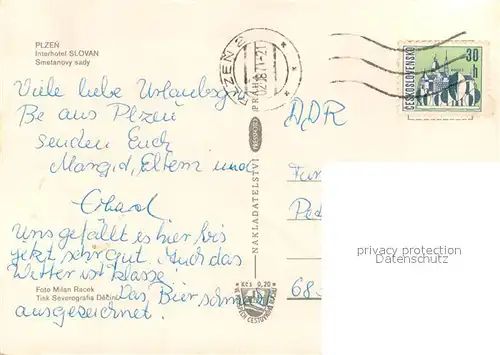 PLZEŇ
Interhotel SLOVAN
Smetanovy sady
PLZEŇ 2
ČESKOSLOVENSKO
30 h
Viele liebe
Be aus Plzeň
senden Euch
Margid, Eltern und
Erhard
Uns gefällt es hier bis
jetzt sehr gut. Auch das
Wetter ist klasse!
Das Bier schmeckt
ausgezeichnet!
DDR
68
NAKLADATELSTVÍ
PRESSFOTO
PRAHA
Foto Milan Racek
Tisk Severografia Děčín
Kčs 0,20
privacy protection
Datenschutz